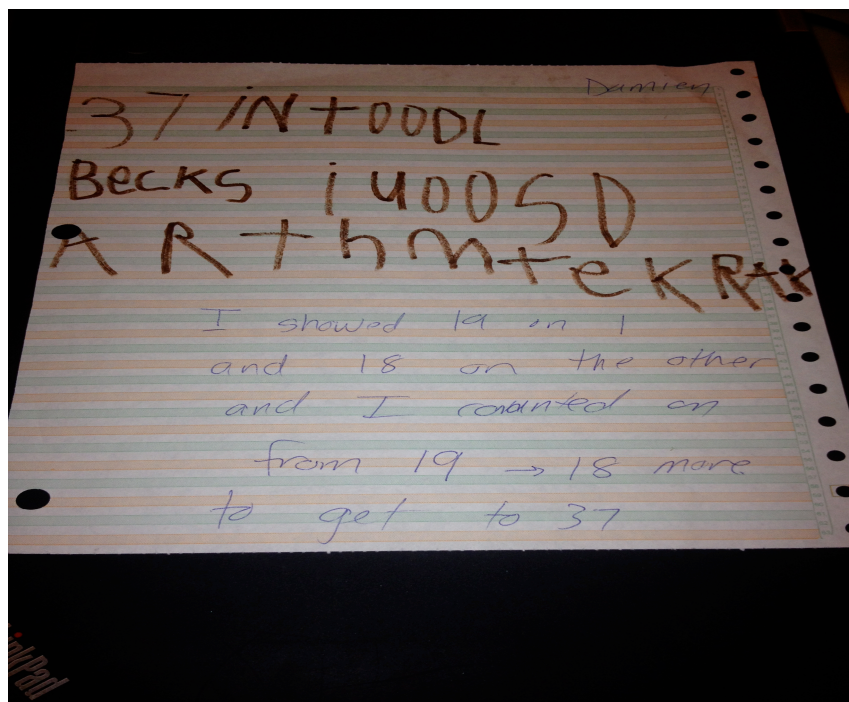 Damien
37 iN tOODL
BecKS i uOOSD
ARthmteK RAK
I showed 19 on 1
and 18 on the other
and I counted on
from 19 → 18 more
to get to 37
inkPad